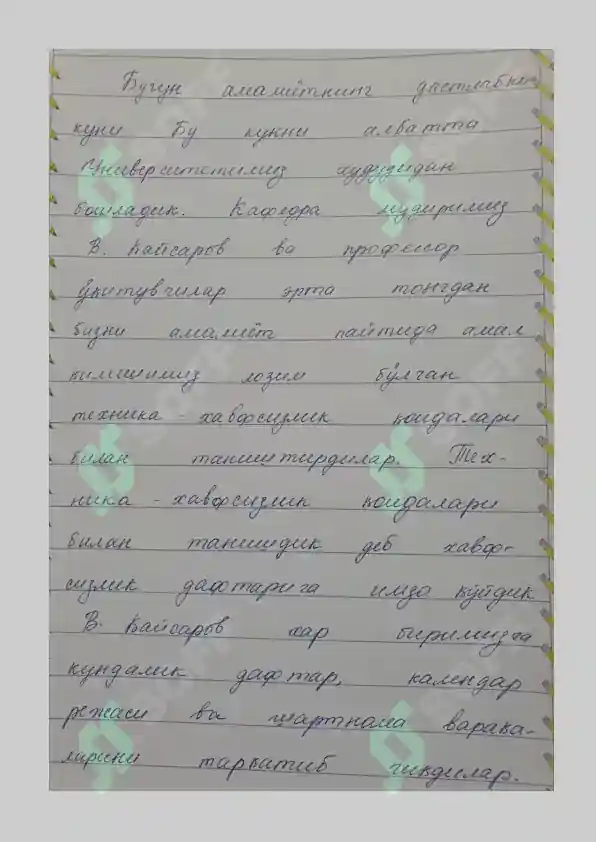 Бугун амалиётнинг дастлабки
куни Бу кунни албатта
Университетимиз худудидан
бошладик. Кафедра мудиримиз
В. Кайсаров ва профессор
ўкитувчилар эрта тонгдан
бизни амалиёт пайтида амал
килишимиз лозим бўлган
техника - хавфсизлик коидалари
билан таништирдилар. Тех-
ника - хавфсизлик коидалари
билан танишдик деб хавф-
сизлик дафтарига имзо кўйдик
В. Кайсаров хар биримизга
кундалик дафтар, календар
режаси ва шартнома варака-
ларини таркатиб чикдилар.
SOFF
SOFF
SOFF
SOFF
SOFF
SOFF